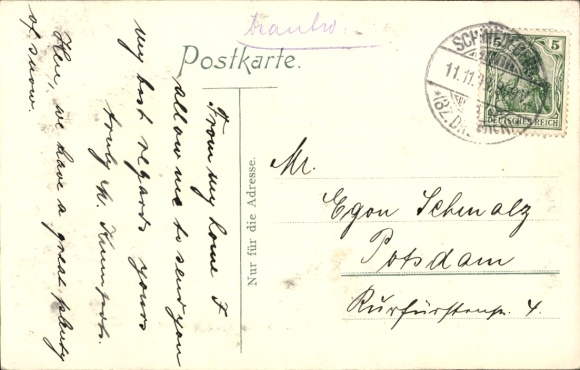 Postkarte.
From my home I
allow me to send you
my best regards yours
truly
Here, we have a great plenty
of snow.
Nur für die Adresse.
Mr.
Egon Schmalz
Potsdam
Kurfürstenstr. 4.
5
DEUTSCHES REICH
11.11.